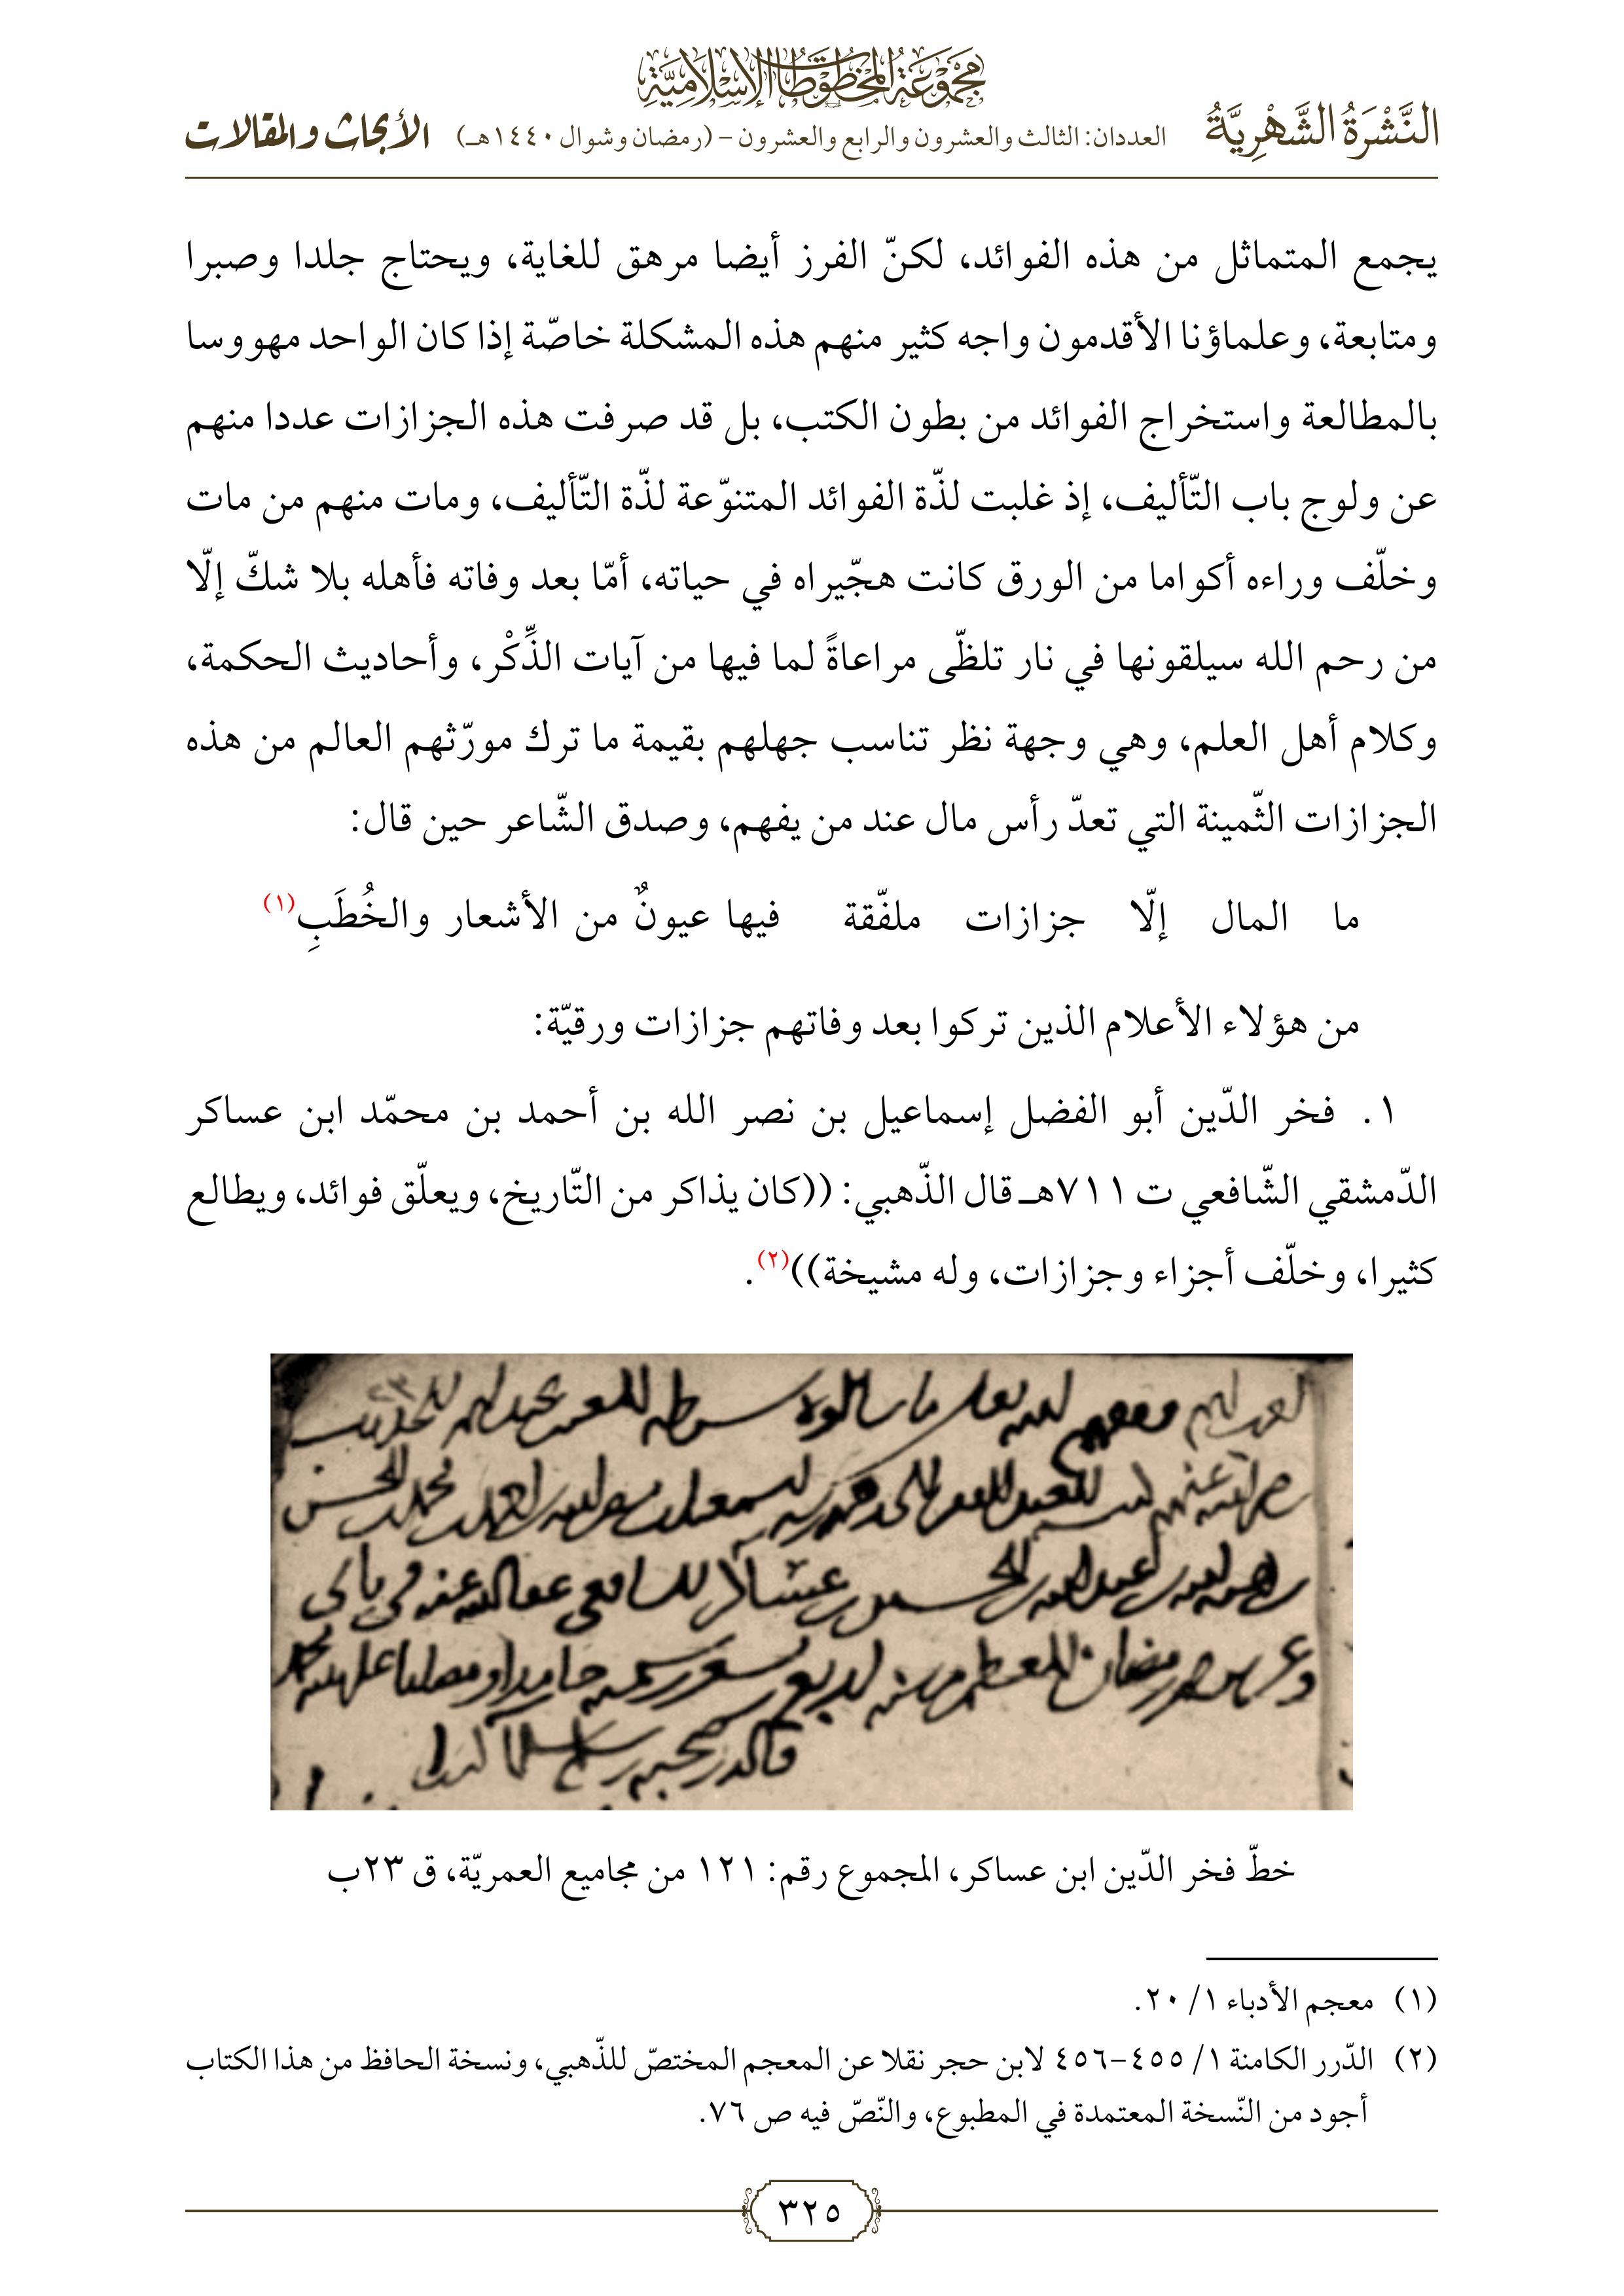 مَجْمُوعَةُ المَخْطُوطَاتِ الإِسْلَامِيَّةِ
النَّشْرَةُ الشَّهْرِيَّةُ العددان: الثالث والعشرون والرابع والعشرون – (رمضان وشوال ١٤٤٠هـ) الأبحاث والمقالات
يجمع المتماثل من هذه الفوائد، لكنّ الفرز أيضا مرهق للغاية، ويحتاج جلدا وصبرا
ومتابعة، وعلماؤنا الأقدمون واجه كثير منهم هذه المشكلة خاصّة إذا كان الواحد مهووسا
بالمطالعة واستخراج الفوائد من بطون الكتب، بل قد صرفت هذه الجزازات عددا منهم
عن ولوج باب التّأليف، إذ غلبت لذّة الفوائد المتنوّعة لذّة التّأليف، ومات منهم من مات
وخلّف وراءه أكواما من الورق كانت هجّيراه في حياته، أمّا بعد وفاته فأهله بلا شكّ إلّا
من رحم الله سيلقونها في نار تلظّى مراعاةً لما فيها من آيات الذِّكْر، وأحاديث الحكمة،
وكلام أهل العلم، وهي وجهة نظر تناسب جهلهم بقيمة ما ترك مورّثهم العالم من هذه
الجزازات الثّمينة التي تعدّ رأس مال عند من يفهم، وصدق الشّاعر حين قال:
ما المال إلّا جزازات ملفّقة فيها عيونٌ من الأشعار والخُطَبِ(١)
من هؤلاء الأعلام الذين تركوا بعد وفاتهم جزازات ورقيّة:
١. فخر الدّين أبو الفضل إسماعيل بن نصر الله بن أحمد بن محمّد ابن عساكر
الدّمشقي الشّافعي ت ٧١١هـ قال الذّهبي: ((كان يذاكر من التّاريخ، ويعلّق فوائد، ويطالع
كثيرا، وخلّف أجزاء وجزازات، وله مشيخة))(٢).
خطّ فخر الدّين ابن عساكر، المجموع رقم: ١٢١ من مجاميع العمريّة، ق ٢٣ب
(١) معجم الأدباء ١/ ٢٠.
(٢) الدّرر الكامنة ١/ ٤٥٥-٤٥٦ لابن حجر نقلا عن المعجم المختصّ للذّهبي، ونسخة الحافظ من هذا الكتاب
أجود من النّسخة المعتمدة في المطبوع، والنّصّ فيه ص ٧٦.
٣٢٥